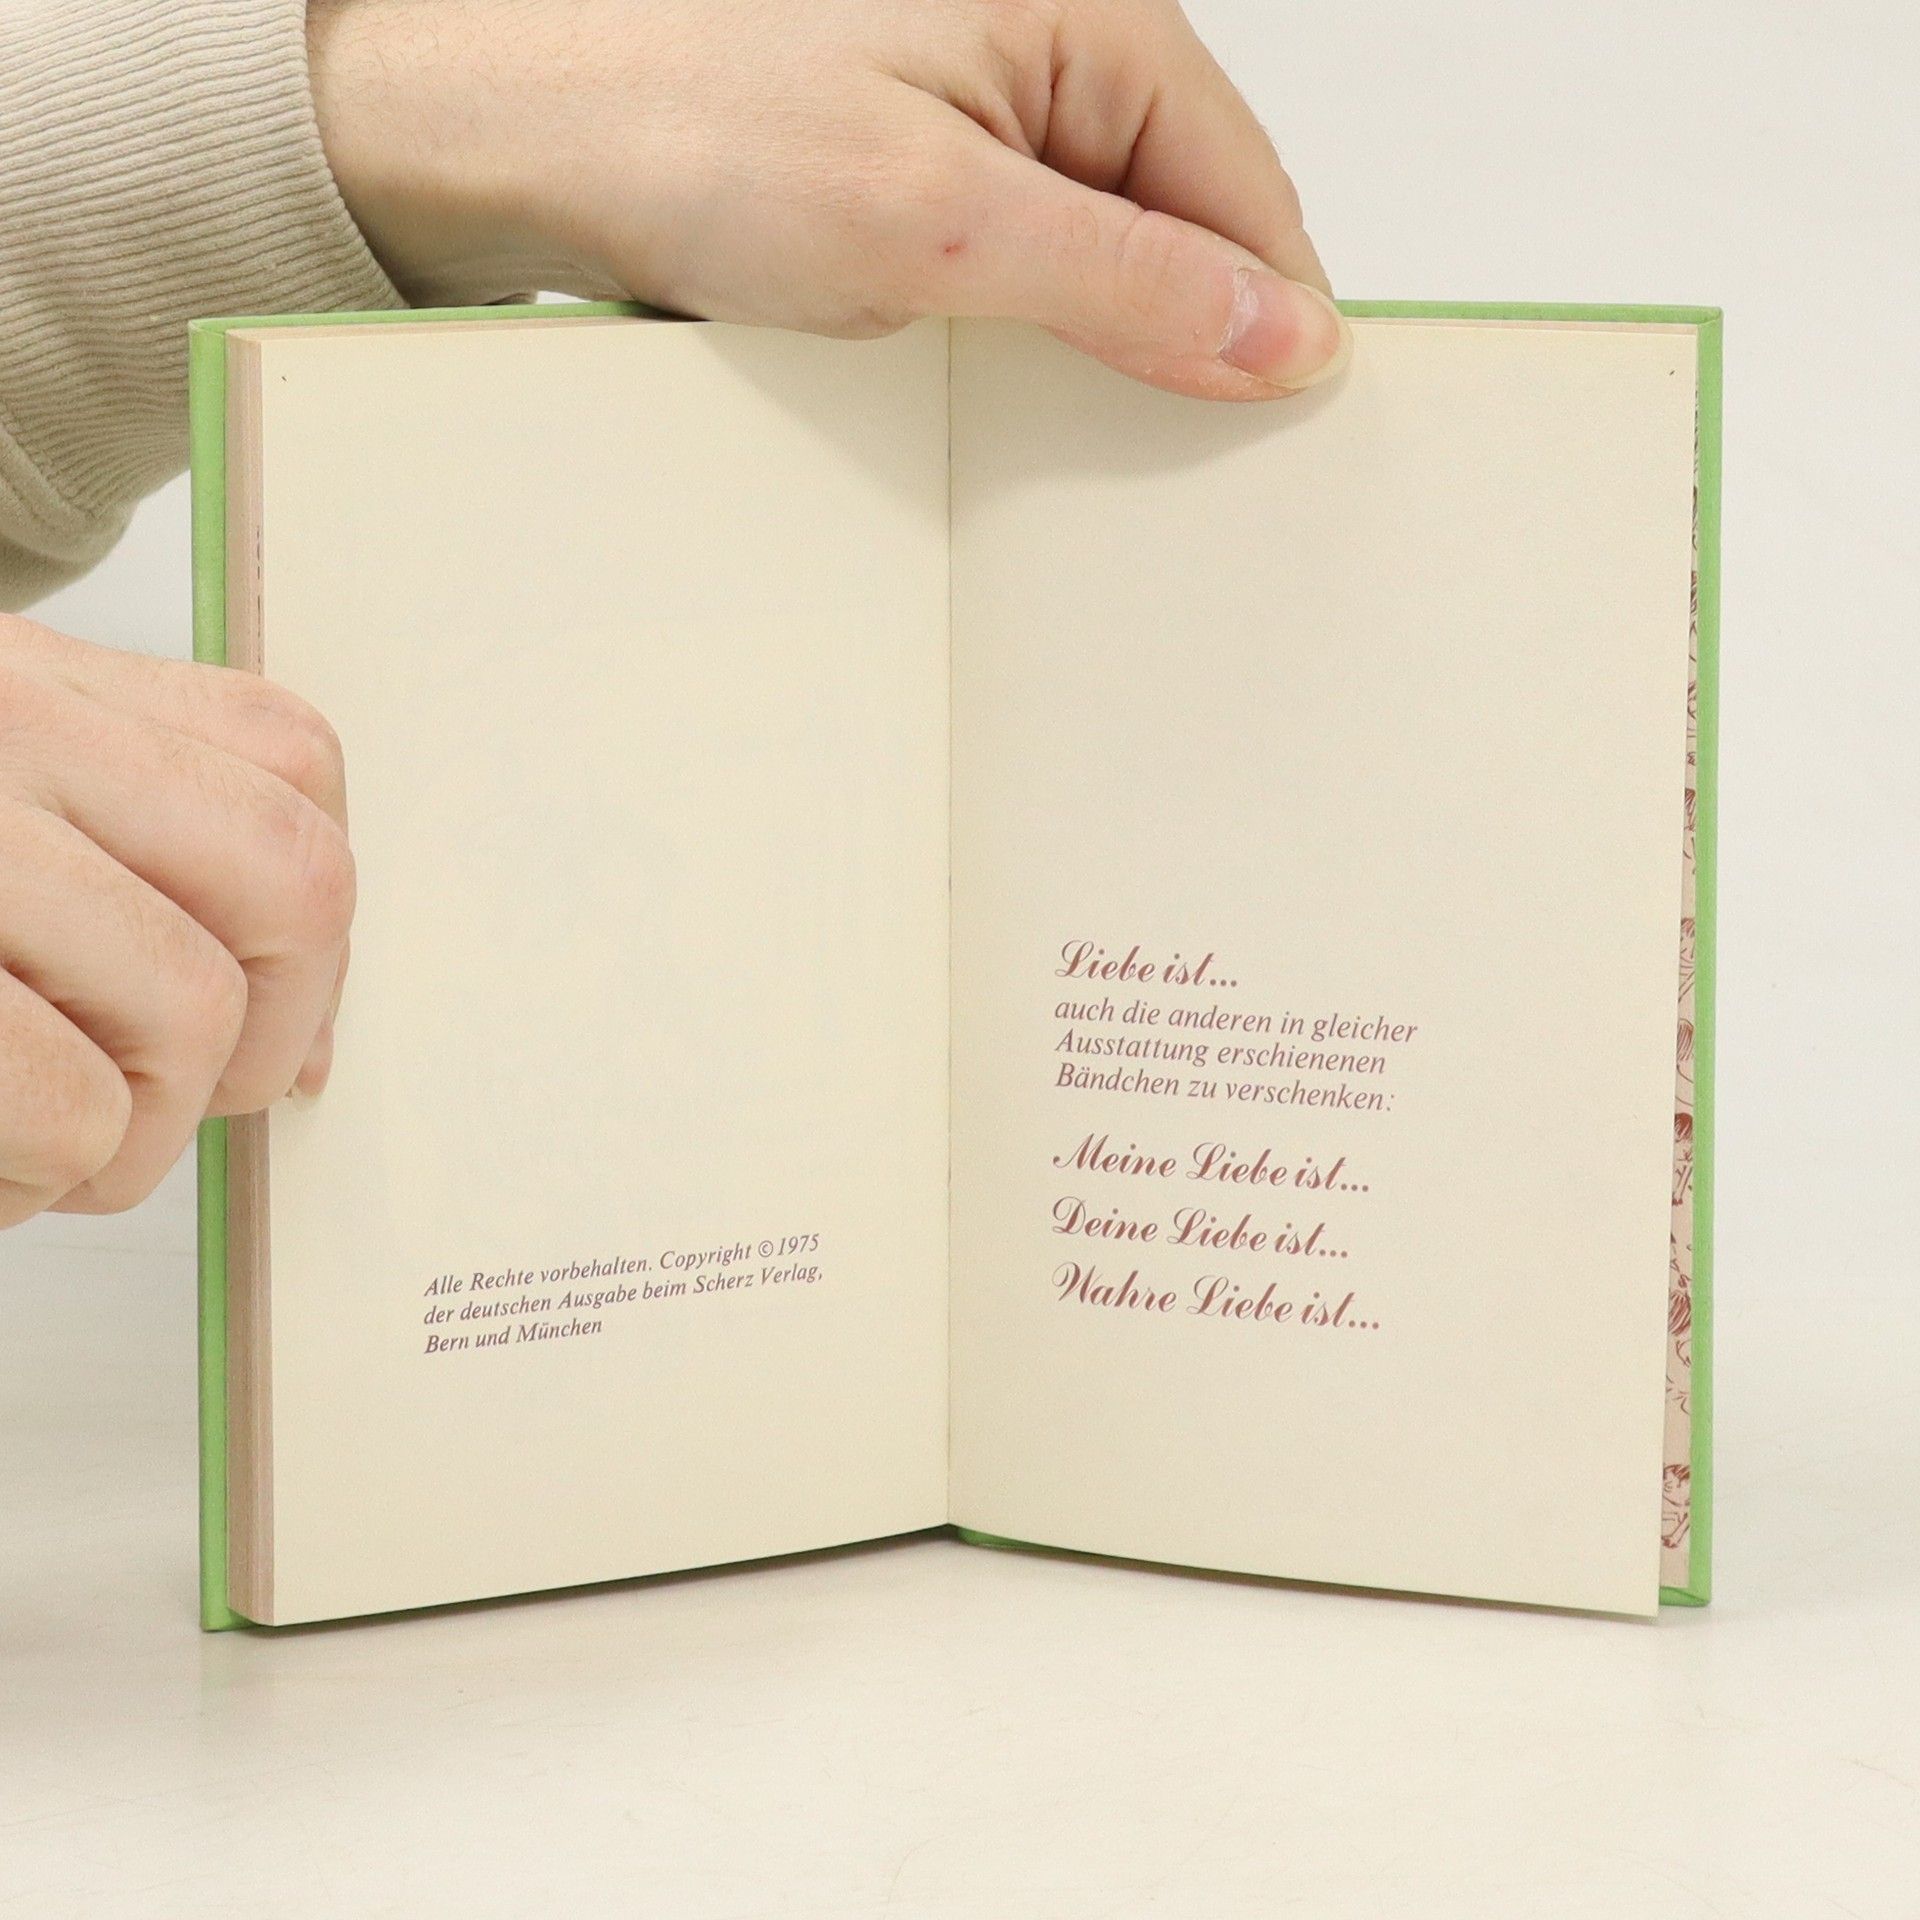 Alle Rechte vorbehalten. Copyright © 1975
der deutschen Ausgabe beim Scherz Verlag,
Bern und München
Liebe ist...
auch die anderen in gleicher
Ausstattung erschienenen
Bändchen zu verschenken:
Meine Liebe ist...
Deine Liebe ist...
Wahre Liebe ist...